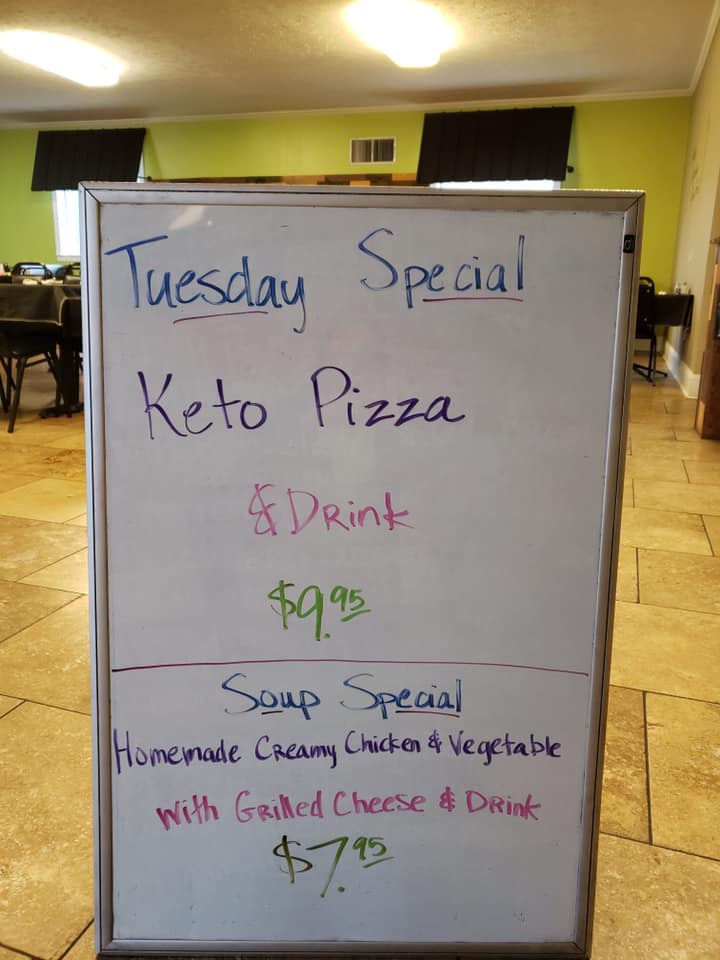 Tuesday Special
Keto Pizza
& Drink
$9.95
Soup Special
Homemade Creamy Chicken & Vegetable
With Grilled Cheese & Drink
$7.95